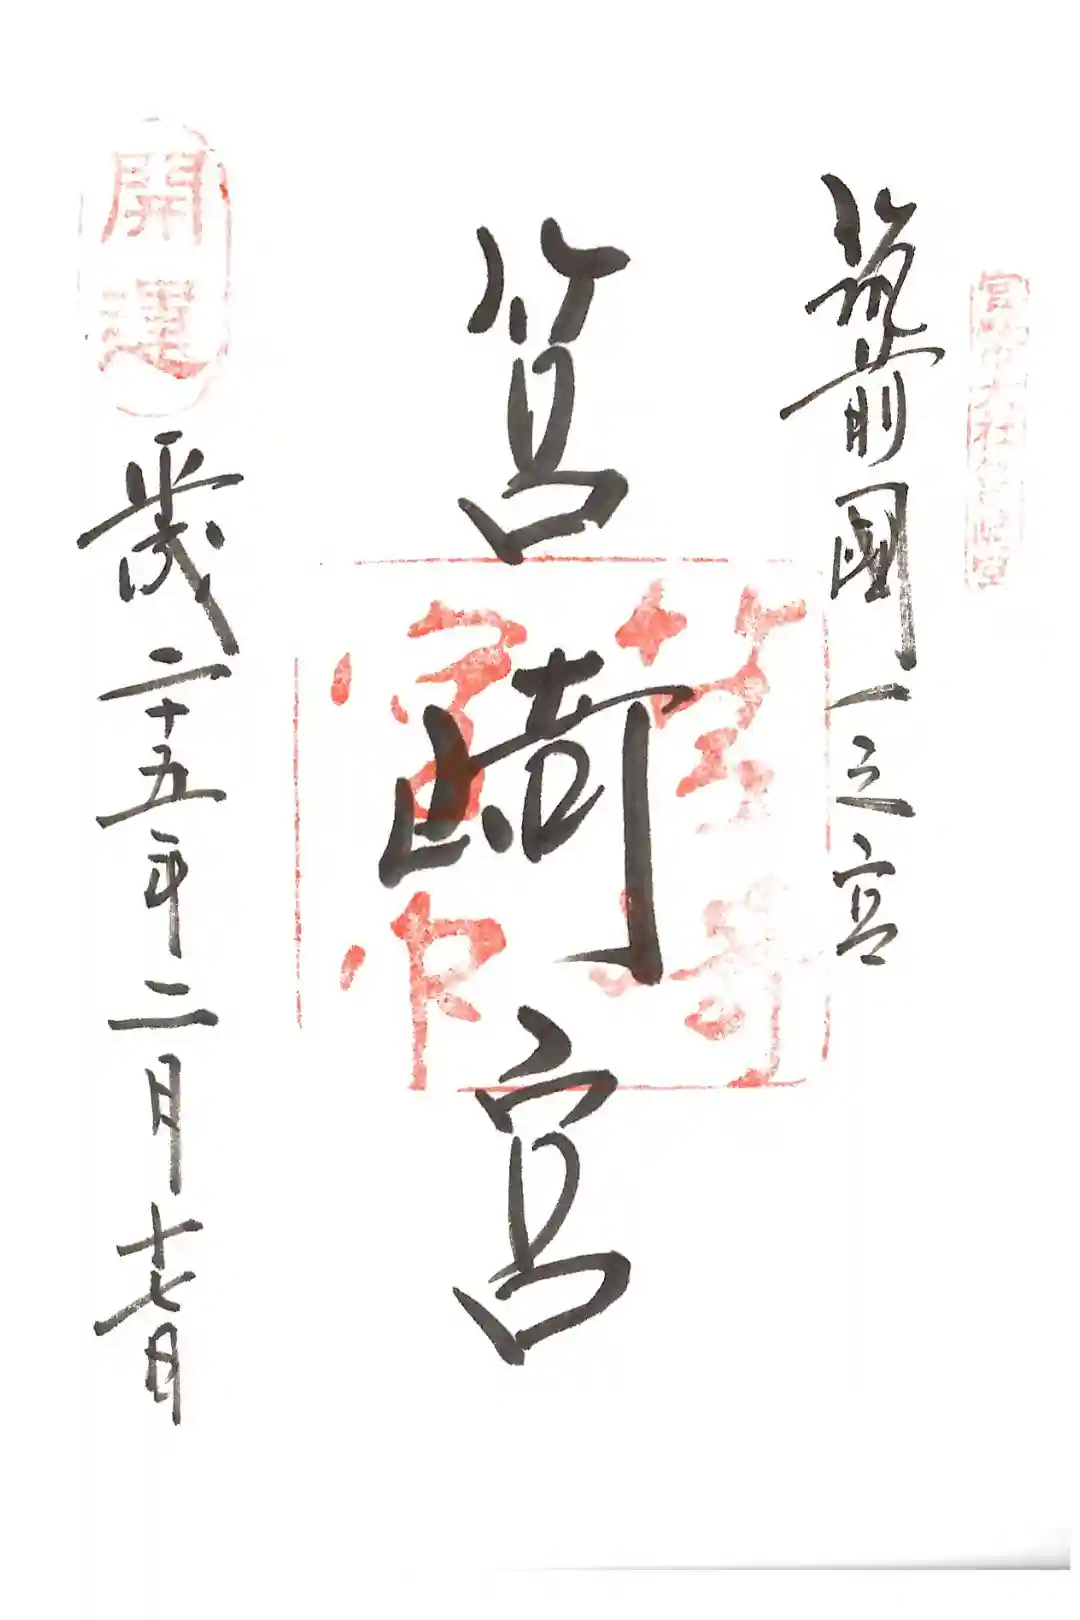 官幣大社筥崎宮
筑前國一之宮
筥崎宮
筥崎宮印
開運
平成二十五年二月十七日